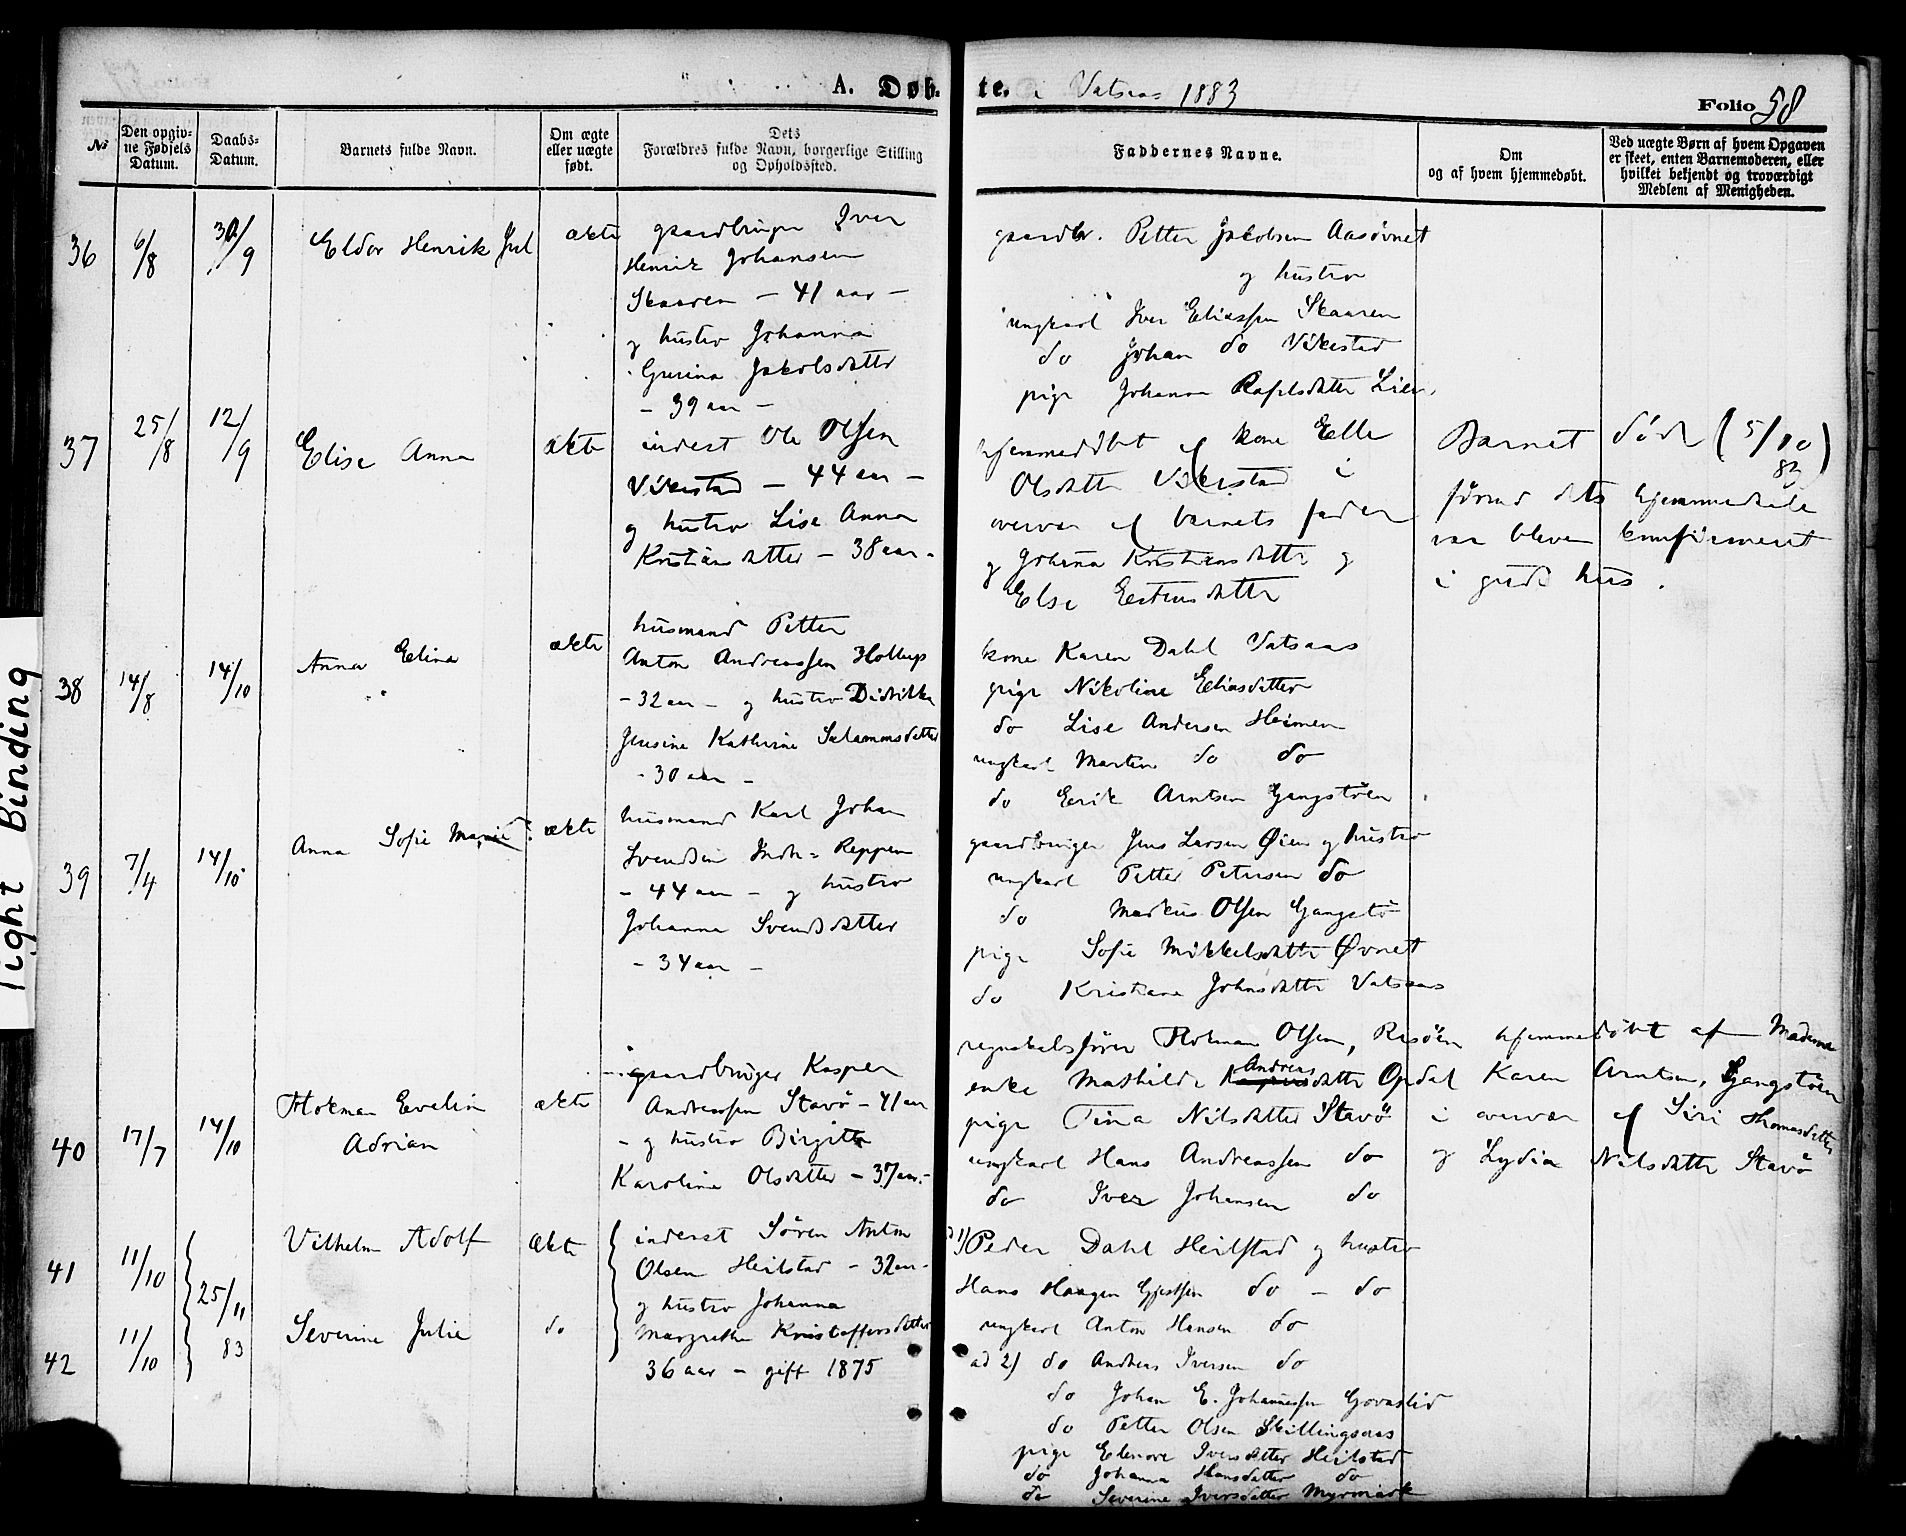 A. Døb-
te. i Vatsaas 1883
Folio 58
№
Den opgiv-
ne Fødsels
Datum.
Daabs-
Datum.
Barnets fulde Navn.
Om ægte
eller uægte
født.
Dets
Forældres fulde Navn, borgerlige Stilling
og Opholdssted.
Faddernes Navne.
Om
og af hvem hjemmedøbt.
Ved uægte Børn af hvem Opgaven
er skeet, enten Barnemoderen, eller
hvilket bekjendt og troværdigt
Medlem af Menigheden.
36
6/8
30/9
Eldor Henrik Jul
ækte
gaardbruger Iver
Henrik Johansen
Skaaren – 41 aar –
og hustro Johanna
Jakobsdatter
– 39 aar –
gaardbr. Petter Jakobsen Aasøvnet
og hustro
ungkarl Iver Eliassen Skaaren
do Johan do Vikestad
pige Johanna
37
25/8
12/9
Elise Anna
ækte
inderst Ole Olsen
Vikestad – 44 aar –
og hustro Lise Anna
Kristiansdatter – 38 aar –
hjemmedøbt af kone Elle
Olsdatter Vikestad i
overvær af barnets fader
og Johanna Kristiansdatter og
Else Estensdatter
Barnet døde (5/10 83)
førend dets hjemmedaab
var bleven konfirmeret
i guds hus.
38
14/8
14/10
Anna Elina
ækte
husmand Petter
Anton Andreassen
– 32 aar – og hustro Didrikke
Jensine Kathrine Salamonsdatter
– 30 aar –
kone Karen Dahl Vatsaas
pige Nikoline Eliasdatter
do Lise Andersen Heimen
ungkarl Martin do do
do Eerik Arntsen Gangstøen
39
7/4
14/10
Anna Sofie Marie
ækte
husmand Karl Johan
Svendsen Indr. Reppen
– 44 aar – og hustro
Johanna Svendsdatter
– 34 aar –
gaardbruger Jens Larsen Øien og hustro
ungkarl Petter Petersen do
do Markus Olsen Gangstø
pige Sofie Mikkelsdatter Øvnet
do Kristiana Johnsdatter Vatsaas
40
17/7
14/10
Flotman Evelin
Adrian
ækte
gaardbruger Kasper
Andreassen Stavø – 41 aar
– og hustro Birgitte
Karoline Olsdatter – 37 aar –
regnskabsfører Flotman Olsen, Risøen
enke Mathilde Andreasdatter Opdal
pige Tina Nilsdatter Stavø
ungkarl Hans Andreassen do
do Iver Johansen do
hjemmedøbt af Madame
Karen Arntsen, Gangstøen
i overvær af Siri Thomasdatter
og Lydia Nilsdatter Stavø
41
11/10
25/11 83
Vilhelm Adolf
ækte
inderst Søren Anton
Olsen Heilstad – 32 aar –
og hustro Johanna
Margrethe Kristoffersdatter
36 aar – gift 1875
ad 1) Peder Dahl Heilstad og hustro
Hans Haagen Gjertsen do – do
ungkarl Anton Hansen do
42
11/10
Severine Julie
do
ad 2) do Andreas Iversen do
do Johan E. Johannessen
do Petter Olsen Skillingsaas
pige Elenore Iversdatter Heilstad
do Johanna Hansdatter do
do Severine Iversdatter Myrmark
Tight Binding